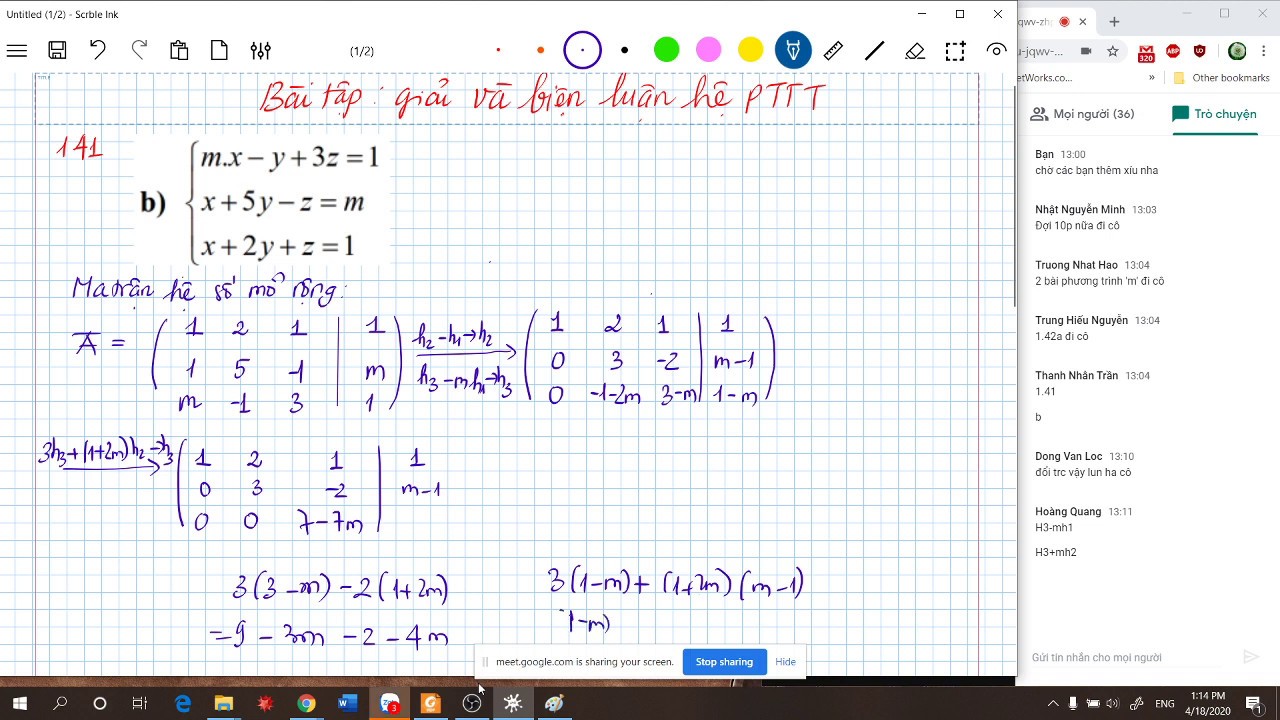 Untitled (1/2) - Scrble Ink
(1/2)
Bài tập: giải và biện luận hệ PTTT
141
b)
m.x − y + 3z = 1
x + 5y − z = m
x + 2y + z = 1
Ma trận hệ số mở rộng:
Ā = ( 1 2 1 | 1
1 5 -1 | m
m -1 3 | 1 )
h2 - h1 → h2
h3 - mh1 → h3
( 1 2 1 | 1
0 3 -2 | m-1
0 -1-2m 3-m | 1-m )
3h3 + (1+2m)h2 → h3
( 1 2 1 | 1
0 3 -2 | m-1
0 0 7-7m |
3(3-m) - 2(1+2m)
= 9 - 3m - 2 - 4m
3(1-m) + (1+2m)(m-1)
(1-m)
meet.google.com is sharing your screen.
Stop sharing
Hide
jqwv-zh
u-jqwv-...
320
ABP
etWorks.co...
»
Other bookmarks
Mọi người (36)
Trò chuyện
Bạn 13:00
chờ các bạn thêm xíu nha
Nhật Nguyễn Minh 13:03
Đợi 10p nữa đi cô
Truong Nhat Hao 13:04
2 bài phương trình 'm' đi cô
Trung Hiếu Nguyễn 13:04
1.42a đi cô
Thanh Nhân Trần 13:04
1.41
b
Dong Van Loc 13:10
đổi trc vậy lun ha cô
Hoàng Quang 13:11
H3-mh1
H3+mh2
Gửi tin nhắn cho mọi người
3
ENG
1:14 PM
4/18/2020